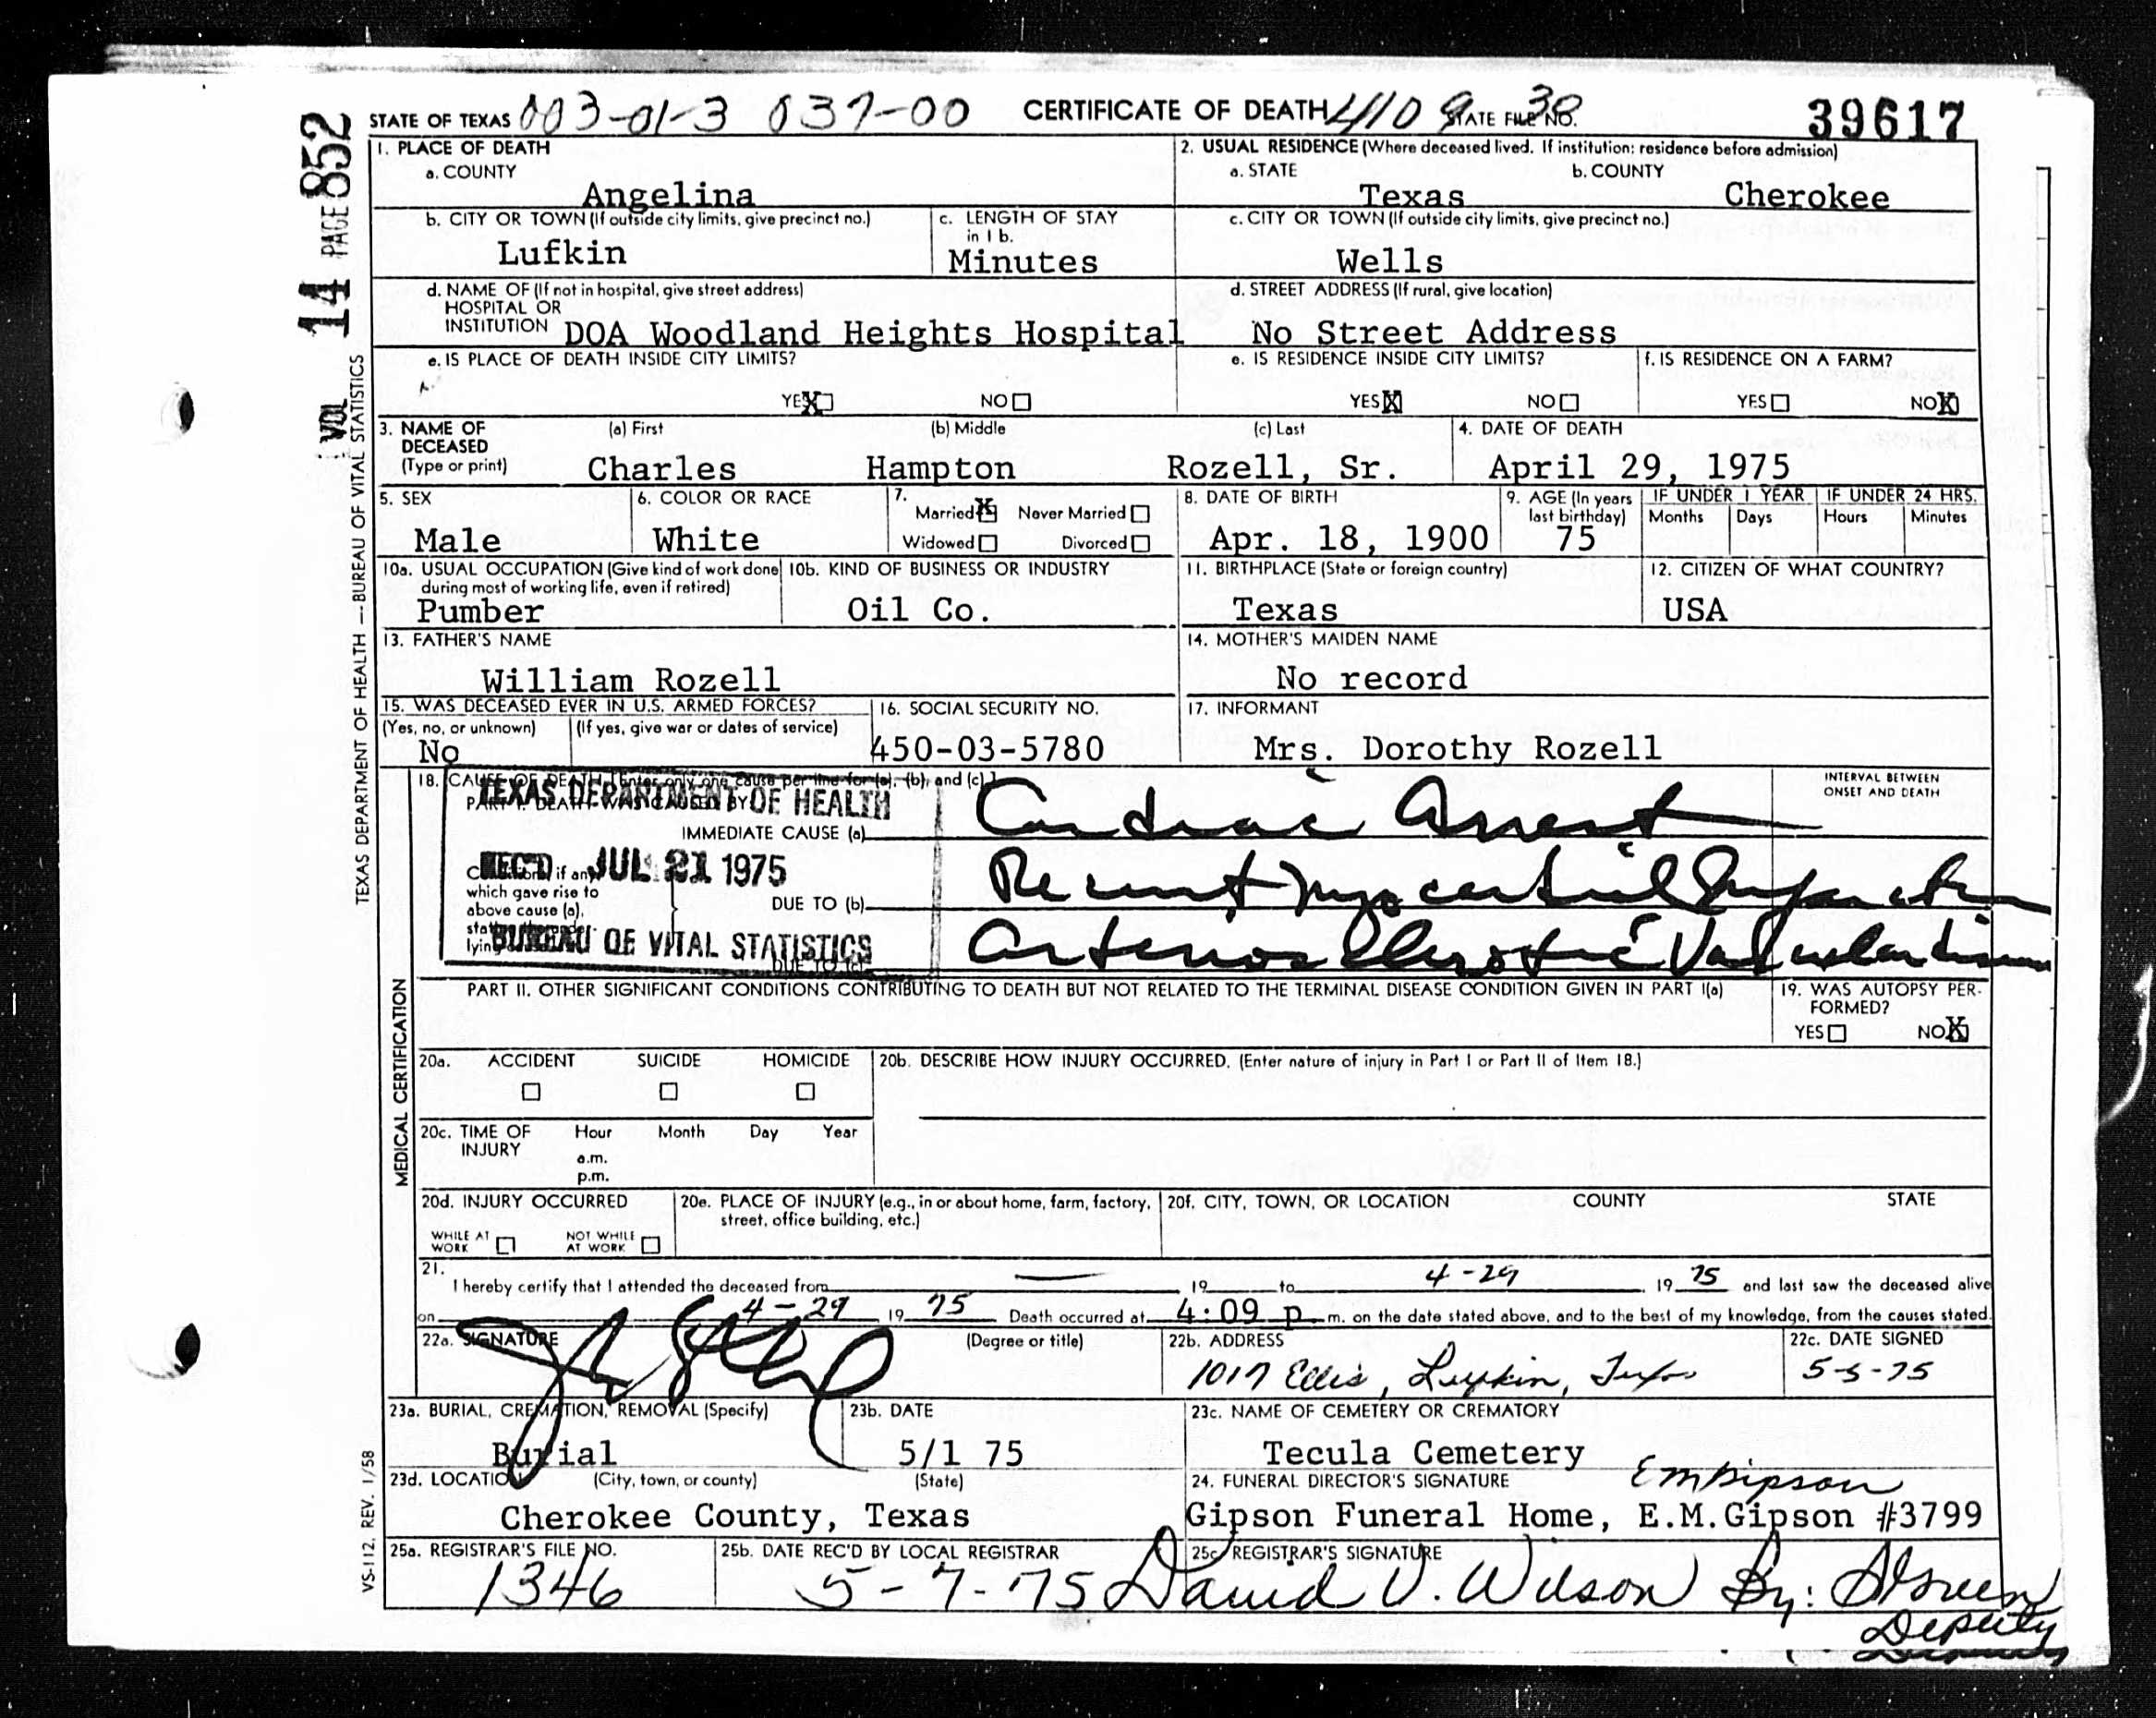 STATE OF TEXAS 003-01-3 037-00 CERTIFICATE OF DEATH 4109 STATE FILE NO. 30 39617
VOL 14 PAGE 852
TEXAS DEPARTMENT OF HEALTH — BUREAU OF VITAL STATISTICS
1. PLACE OF DEATH
a. COUNTY
Angelina
2. USUAL RESIDENCE (Where deceased lived. If institution: residence before admission)
a. STATE b. COUNTY
Texas Cherokee
b. CITY OR TOWN (If outside city limits, give precinct no.)
Lufkin
c. LENGTH OF STAY
in 1 b.
Minutes
c. CITY OR TOWN (If outside city limits, give precinct no.)
Wells
d. NAME OF (If not in hospital, give street address)
HOSPITAL OR
INSTITUTION DOA Woodland Heights Hospital
d. STREET ADDRESS (If rural, give location)
No Street Address
e. IS PLACE OF DEATH INSIDE CITY LIMITS?
YES X NO
e. IS RESIDENCE INSIDE CITY LIMITS?
YES X NO
f. IS RESIDENCE ON A FARM?
YES NO X
3. NAME OF (a) First (b) Middle (c) Last
DECEASED
(Type or print) Charles Hampton Rozell, Sr.
4. DATE OF DEATH
April 29, 1975
5. SEX
Male
6. COLOR OR RACE
White
7.
Married X Never Married
Widowed Divorced
8. DATE OF BIRTH
Apr. 18, 1900
9. AGE (In years
last birthday)
75
IF UNDER 1 YEAR IF UNDER 24 HRS.
Months Days Hours Minutes
10a. USUAL OCCUPATION (Give kind of work done
during most of working life, even if retired)
Pumber
10b. KIND OF BUSINESS OR INDUSTRY
Oil Co.
11. BIRTHPLACE (State or foreign country)
Texas
12. CITIZEN OF WHAT COUNTRY?
USA
13. FATHER'S NAME
William Rozell
14. MOTHER'S MAIDEN NAME
No record
15. WAS DECEASED EVER IN U.S. ARMED FORCES?
(Yes, no, or unknown) (If yes, give war or dates of service)
No
16. SOCIAL SECURITY NO.
450-03-5780
17. INFORMANT
Mrs. Dorothy Rozell
MEDICAL CERTIFICATION
18. CAUSE OF DEATH [Enter only one cause per line for (a), (b), and (c).]
PART I. DEATH WAS CAUSED BY
IMMEDIATE CAUSE (a) Cardiac Arrest
INTERVAL BETWEEN
ONSET AND DEATH
TEXAS DEPARTMENT OF HEALTH
REC'D JUL 21 1975
BUREAU OF VITAL STATISTICS
Conditions, if any,
which gave rise to
above cause (a),
stating the under-
lying
DUE TO (b) Recent Myocardial Infarction
DUE TO (c) Arteriosclerotic Vascular disease
PART II. OTHER SIGNIFICANT CONDITIONS CONTRIBUTING TO DEATH BUT NOT RELATED TO THE TERMINAL DISEASE CONDITION GIVEN IN PART I(a)
19. WAS AUTOPSY PER-
FORMED?
YES NO X
20a. ACCIDENT SUICIDE HOMICIDE
20b. DESCRIBE HOW INJURY OCCURRED. (Enter nature of injury in Part I or Part II of Item 18.)
20c. TIME OF Hour Month Day Year
INJURY
a.m.
p.m.
20d. INJURY OCCURRED
WHILE AT WORK NOT WHILE AT WORK
20e. PLACE OF INJURY (e.g., in or about home, farm, factory,
street, office building, etc.)
20f. CITY, TOWN, OR LOCATION COUNTY STATE
21.
I hereby certify that I attended the deceased from — 19 to 4-29 19 75 and last saw the deceased alive
on 4-29 19 75 Death occurred at 4:09 p m. on the date stated above, and to the best of my knowledge, from the causes stated.
22a. SIGNATURE (Degree or title)
22b. ADDRESS
1017 Ellis, Lufkin, Texas
22c. DATE SIGNED
5-5-75
23a. BURIAL, CREMATION, REMOVAL (Specify)
Burial
23b. DATE
5/1 75
23c. NAME OF CEMETERY OR CREMATORY
Tecula Cemetery
23d. LOCATION (City, town, or county) (State)
Cherokee County, Texas
24. FUNERAL DIRECTOR'S SIGNATURE EM Gipson
Gipson Funeral Home, E.M.Gipson #3799
25a. REGISTRAR'S FILE NO.
1346
25b. DATE REC'D BY LOCAL REGISTRAR
5-7-75
25c. REGISTRAR'S SIGNATURE
David V. Wilson By:
Deputy
VS-112. REV. 1/58